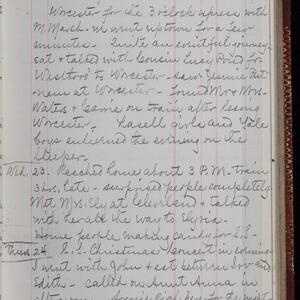 Worcester for the 3 o'clock express with
M. Marsh - we went up town for a few
minutes - Quite an eventful journey -
sat & talked with Cousin Lucy Pond for
to Worcester - saw Jennie Put-
nam at Worcester - joined Mr & Mrs.
Waters & Carrie on train after leaving
Worcester. Lasell girls and Yale
boys enlivened the evening on the
sleeper.
Wed. 23. Reached home about 3 P.M. train
3 hrs. late - surprised people completely
Met Mrs. Ely at Cleveland & talked
with her all the way to Elyria.
Home people making candy for S.S.
Thurs. 24. S.S. Christmas concert in evening
I went with John & sat between and
Edith - called on Aunt Anna in